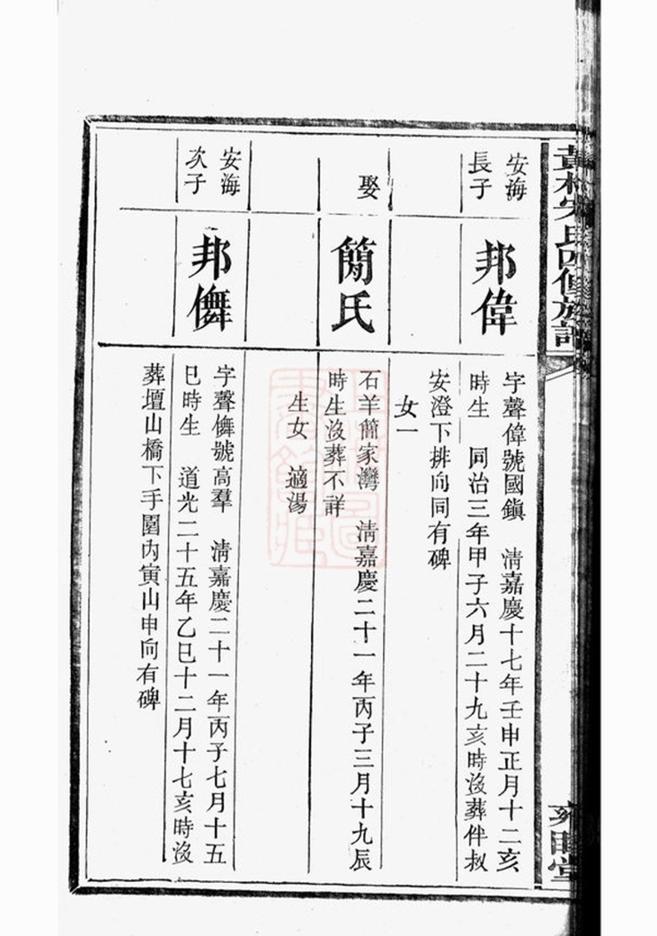 安海
長子
邦偉
字聲偉號國鎮 清嘉慶十七年壬申正月十二亥
時生 同治三年甲子六月二十九亥時沒葬伴叔
安澄下排向同有碑
女一
娶
簡氏
石羊簡家灣 清嘉慶二十一年丙子三月十九辰
時生沒葬不詳
生女 適湯
安海
次子
邦儛
字聲儛號高羣 清嘉慶二十一年丙子七月十五
巳時生 道光二十五年乙巳十二月十七亥時沒
葬壇山橋下手園內寅山申向有碑